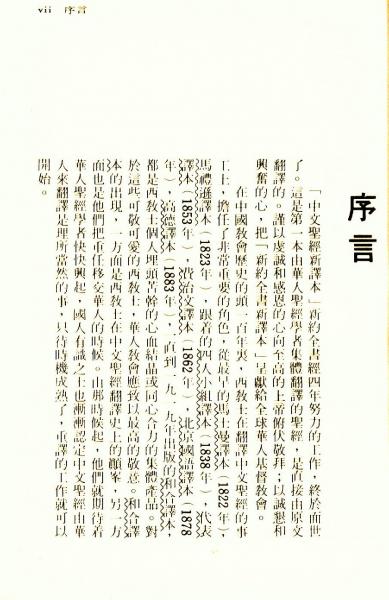 vii 序言
序言
「中文聖經新譯本」新約全書經四年努力的工作，終於面世
了。這是第一本由華人聖經學者集體翻譯的聖經，是直接由原文
翻譯的。謹以虔誠和感恩的心向至高的上帝俯伏敬拜；以誠懇和
興奮的心，把「新約全書新譯本」呈獻給全球華人基督教會。
在中國教會歷史的頭一百年裏，西教士在翻譯中文聖經的事
工上，擔任了非常重要的角色，從最早的馬士曼譯本（1822年），
馬禮遜譯本（1823年），跟着的四人小組譯本（1838年），代表
譯本（1853年），費治文譯本（1862年），北京國語譯本（1878
年），高德譯本（1883年），直到一九一九年出版的和合譯本，
都是西教士個人埋頭苦幹的心血結晶或同心合力的集體產品。對
於這些可敬可愛的西教士，華人教會應致以最高的敬意。和合譯
本的出現，一方面是西教士在中文聖經翻譯史上的顚峯，另一方
面也是他們把重任移交華人的時候。由那時候起，他們就期待着
華人聖經學者快快興起，國人有識之士也漸漸認定中文聖經由華
人來翻譯是理所當然的事，只待時機成熟了，重譯的工作就可以
開始。